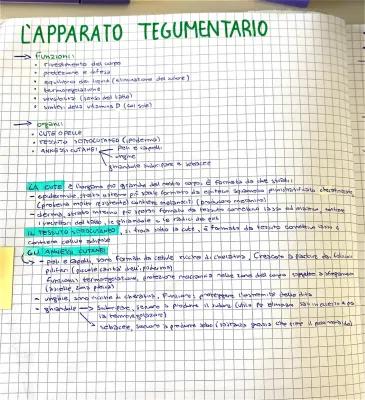 L'APPARATO TEGUMENTARIO
→ Funzioni:
• rivestimento del corpo
• protezione e difesa
• equilibrio dei liquidi (eliminazione del sudore)
• termoregolazione
• sensibilità (senso del tatto)
• sintesi della vitamina D (col sole)
→ organi:
• CUTE O PELLE
• TESSUTO SOTTOCUTANEO (ipoderma)
• ANNESSI CUTANEI → peli e capelli
unghie
ghiandole sudoripare e sebacee
LA CUTE è l'organo più grande del nostro corpo. È formata da due strati:
- epidermide, strato esterno più sottile formato da epitelio squamoso pluristratificato cheratinizzato
(proteina molto resistente) contiene melanociti (producono melanina)
- derma, strato interno più spesso formato da tessuto connettivo lasso ad matrice, contiene
i recettori del tatto, le ghiandole e le radici dei peli
IL TESSUTO SOTTOCUTANEO, si trova sotto la cute, è formato da tessuto connettivo lasso e
contiene cellule adipose
GLI ANNESSI CUTANEI
- peli e capelli, sono formati da cellule ricche di cheratina, crescono a partire dai follicoli
piliferi (piccole cavità dell'epidermide)
Funzioni: termoregolazione, protezione meccanica nelle zone del corpo soggette a sfregamenti
(ascelle, zona pubica)
- unghie, sono ricche di cheratina, Funzioni: proteggere l'estremità delle dita
- ghiandole → sudoripare, servono a produrre il sudore (utile per eliminare sali in eccesso e per
la termoregolazione)
sebacee, servono a produrre sebo (sostanza grassa che rende il pelo morbido)